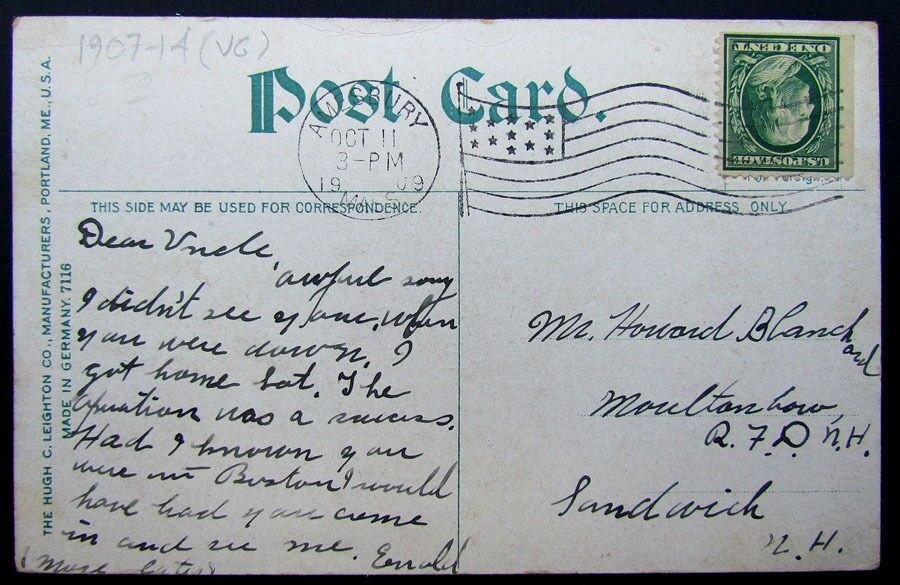 1907-14 (VG)
Post Card.
AMESBURY
OCT 11
3-PM
1909
MASS
ONE CENT
U.S. POSTAGE
THIS SIDE MAY BE USED FOR CORRESPONDENCE.
THIS SPACE FOR ADDRESS ONLY.
THE HUGH C. LEIGHTON CO., MANUFACTURERS, PORTLAND, ME., U.S.A.
MADE IN GERMANY. 7116
Dear Uncle
awful sorry
I didn't see you, when
you were down. I
got home Sat. The
operation was a success.
Had I known you
were in Boston I would
have had you come
in and see me.
More later
Mr. Howard Blanchard
Moultonboro,
R.F.D. N.H.
Sandwich
N. H.